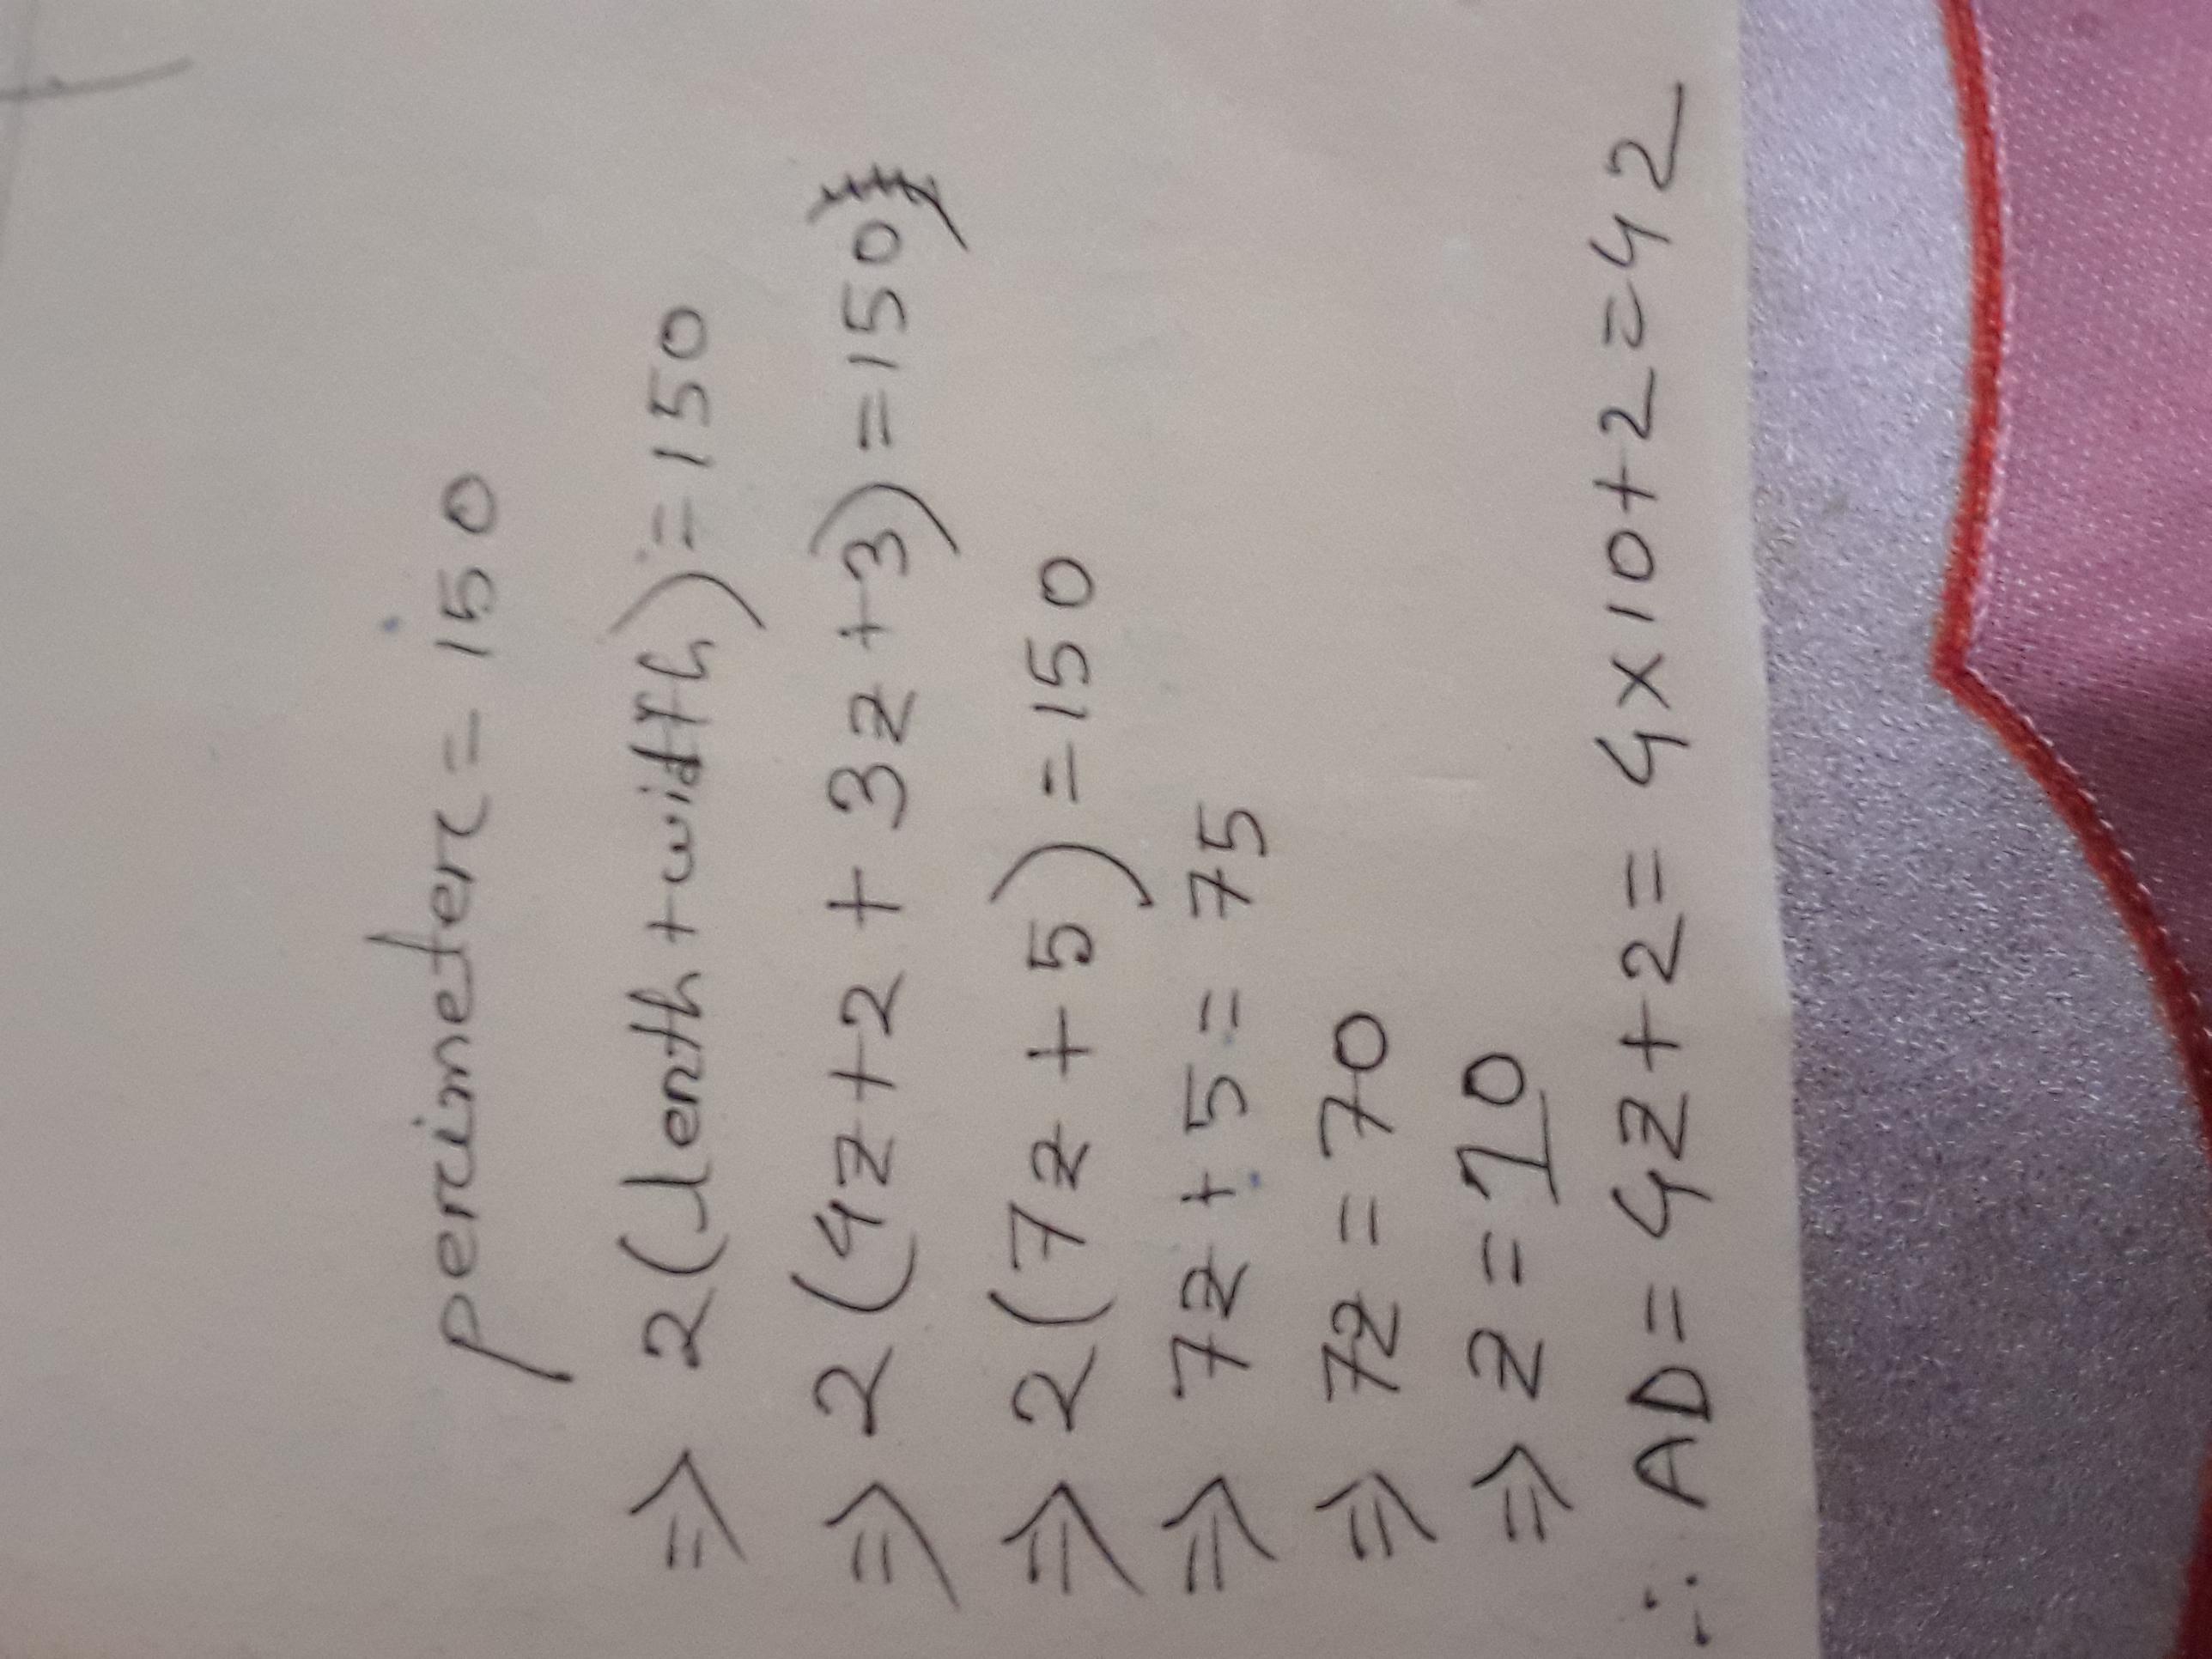 percimeterc = 150
⇒ 2(lenth + width) = 150
⇒ 2(4z+2 + 3z+3) = 150
⇒ 2(7z + 5) = 150
⇒ 7z + 5 = 75
⇒ 7z = 70
⇒ z = 10
∴ AD = 4z+2 = 4×10+2 = 42